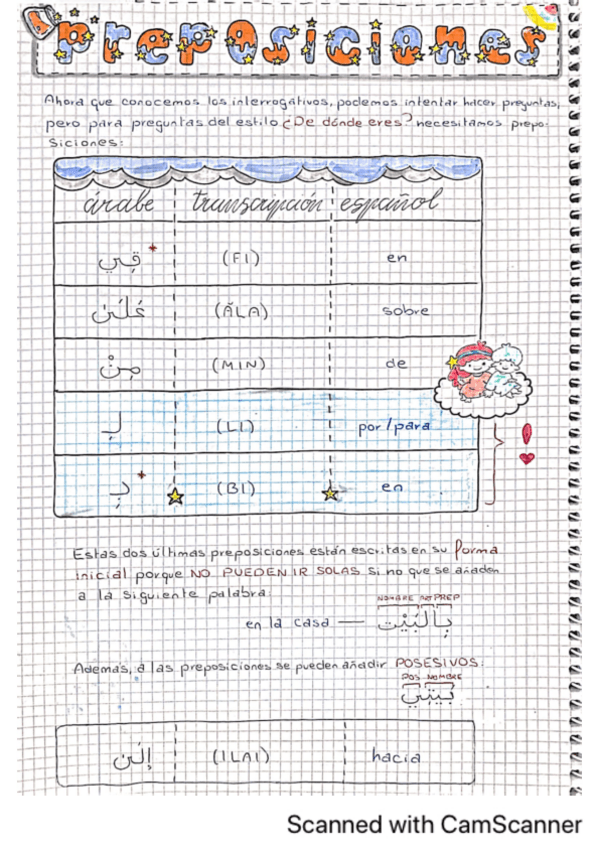 preposiciones
Ahora que conocemos los interrogativos, podemos intentar hacer preguntas,
pero para preguntas del estilo ¿De dónde eres? necesitamos prepo-
siciones:
árabe transcripción español
فِي * (FI) en
عَلَى (ÃLA) sobre
مِنْ (MIN) de
لِـ (LI) por/para
بِـ * (BI) en
!
Estas dos últimas preposiciones están escritas en su forma
inicial porque NO PUEDEN IR SOLAS si no que se añaden
a la siguiente palabra:
NOMBRE ART PREP
en la casa — بِالْبَيْت
Además, a las preposiciones se pueden añadir POSESIVOS:
POS NOMBRE
بَيْتِي
إِلَى (ILAI) hacia
Scanned with CamScanner